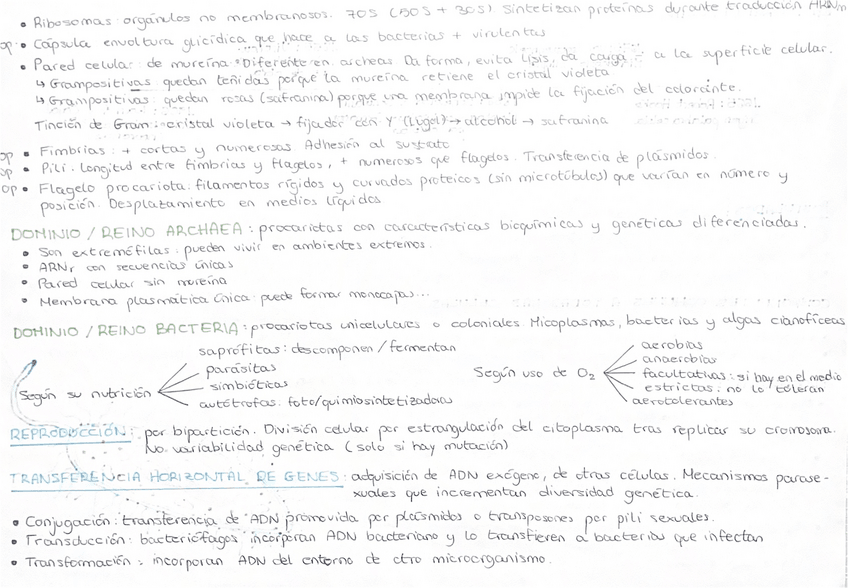 • Ribosomas: orgánulos no membranosos. 70S (50S + 30S) Sintetizan proteínas durante traducción ARNm
op • Cápsula envoltura glicídica que hace a las bacterias + virulentas
• Pared celular: de mureína. Diferente en archeas. Da forma, evita lisis, da carga - a la superficie celular.
↳ Grampositivas quedan teñidas porque la mureína retiene el cristal violeta
↳ Grampositivas quedan rosas (safranina) porque una membrana impide la fijación del colorante.
Tinción de Gram: cristal violeta → fijador con Y (lugol) → alcohol → safranina
op • Fimbrias: + cortas y numerosas Adhesión al sustrato
op • Pili: Longitud entre fimbrias y flagelos, + numerosos que flagelos. Transferencia de plásmidos.
op • Flagelo procariota: filamentos rígidos y curvados proteicos (sin microtúbulos) que varían en número y
posición. Desplazamiento en medios líquidos
DOMINIO / REINO ARCHAEA: procariotas con características bioquímicas y genéticas diferenciadas.
• Son extremófilas: pueden vivir en ambientes extremos.
• ARNr con secuencias únicas
• Pared celular sin mureína
• Membrana plasmática única: puede formar monocapas...
DOMINIO / REINO BACTERIA: procariotas unicelulares o coloniales. Micoplasmas, bacterias y algas cianofíceas
Según su nutrición
saprófitas: descomponen / fermentan
parásitas
simbióticas
autótrofas: foto/quimiosintetizadoras
Según uso de O2
aerobias
anaerobias
facultativas: si hay en el medio
estrictas: no lo toleran
aerotolerantes
REPRODUCCIÓN: por bipartición. División celular por estrangulación del citoplasma tras replicar su cromosoma.
No variabilidad genética (solo si hay mutación)
TRANSFERENCIA HORIZONTAL DE GENES: adquisición de ADN exógeno, de otras células. Mecanismos parase-
xuales que incrementan diversidad genética.
• Conjugación: transferencia de ADN promovida por plásmidos o transposones por pili sexuales.
• Transducción: bacteriófagos incorporan ADN bacteriano y lo transfieren a bacterias que infectan
• Transformación: incorporan ADN del entorno de otro microorganismo.